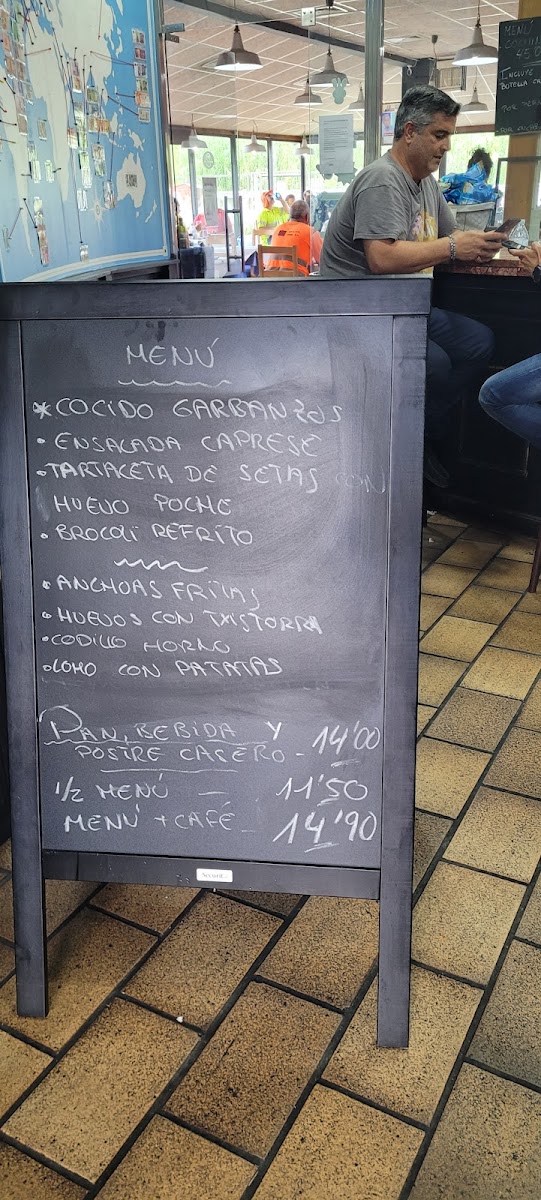 MENÚ
COCIDO GARBANZOS
• ENSALADA CAPRESE
• TARTALETA DE SETAS CON
HUEVO POCHE
• BROCOLI REFRITO
• ANCHOAS FRITAS
• HUEVOS CON TXISTORRA
• CODILLO HORNO
• LOMO CON PATATAS
PAN, BEBIDA Y
POSTRE CASERO - 14'00
1/2 MENÚ — 11'50
MENÚ + CAFÉ - 14'90
MENÚ
INCLUYE
BOTELLA